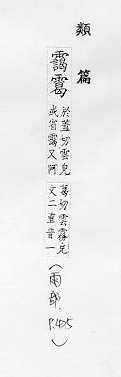 類篇
靄
於蓋切雲皃
或省靄又阿
葛切雲霧皃
文二重音一
(雨部.
P.425)